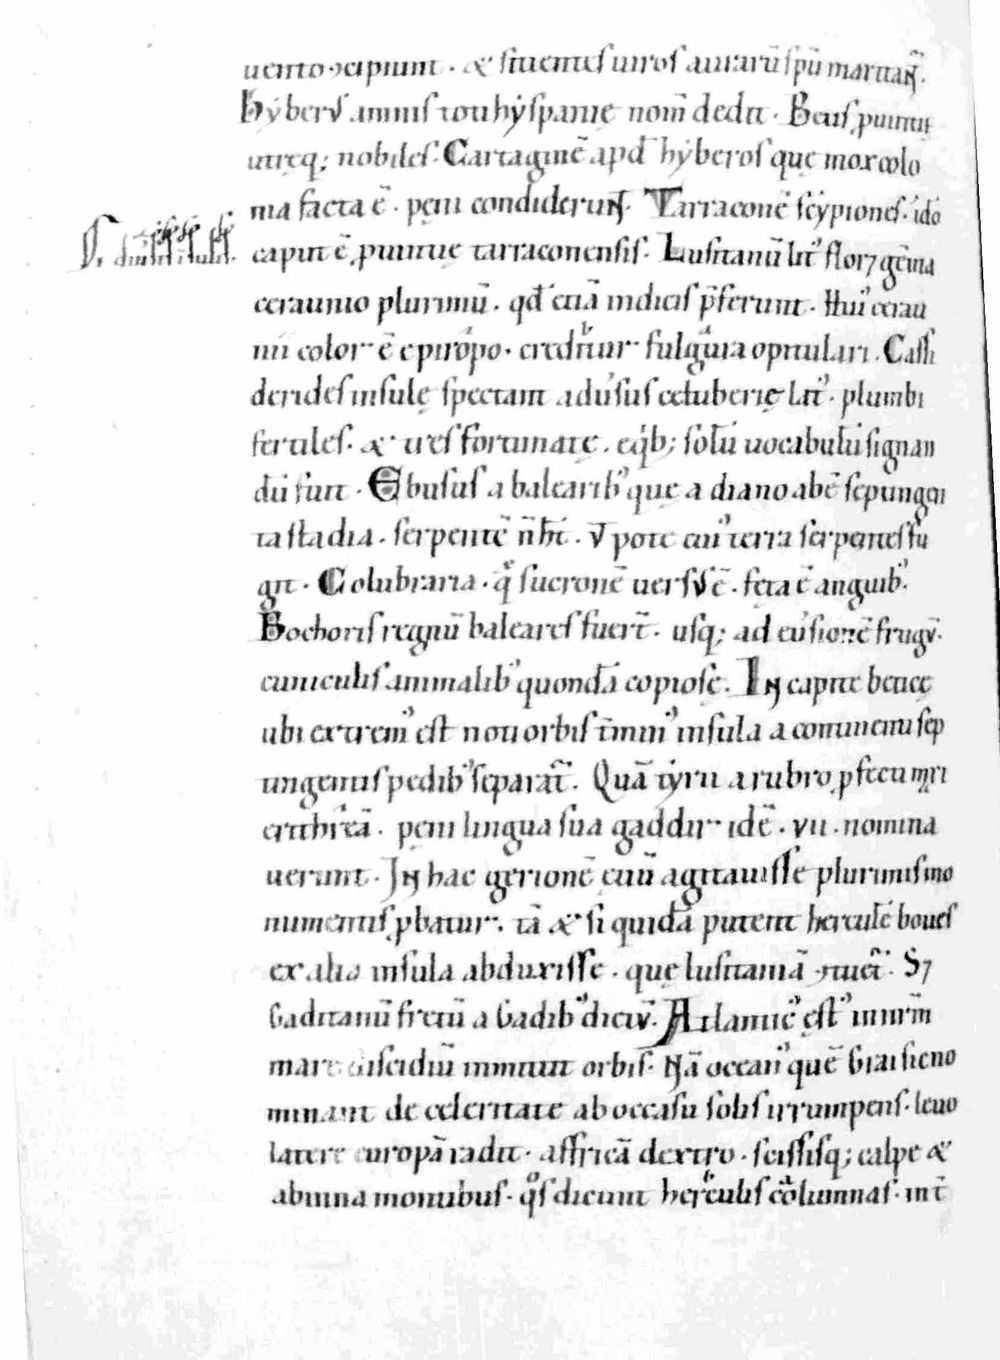 uento ɔcipiunt · & sitientes uiros aurarū spū maritaɴ̄.
hẏberꝰ amnis toti hẏspanię nom̄ dedit · Betis ꝓuintię
utręq; nobiles · Cartaginē apd̄ hẏberos quę mox colo
nia facta ē · pęni condiderunt̄. Tarraconē scẏpiones · ido
caput ē ꝓuintię tarraconensis · Lusitanū lit᾽ flor⁊ gēma
ceraunio plurimū · qd̄ etiā indicis p̄ferunt · Hui᾽ cerau
nii color ē e piropo · creditur fulgura opitulari · Cassi
terides insulę spectant aduersus celtiberię lat᾽ · plumbi
fertiles · & tres fortunatę · eqb; solū uocabulū signan
dū fuit · Ebusus a balearib᾽ quę a diano abē septingen
ta stadia · serpentē n̄ ht̄ · Vpote cui᾽ terra serpentes fu
git · Colubraria · q̄ sucronē uersꝰ ē · feta ē anguib᾽.
Bochoris regnū baleares fuert̄ · usq; ad euersionē frugū ·
cuniculis animalib᾽ quondā copiosę · In capite beticę
ubi extrem᾽ est noti orbis t̄min᾽ insula a continenti sep
tingentis pedib᾽ separat̄ · Quā tẏrii a rubro ꝓfecti mri
eritħreā · pęni lingua sua gaddir idē · vii · nomina
uerunt · In hac gerionē euū agitauisse plurimis mo
numentis ꝓbatur · tā & si quidā putent herculē boues
ex alia insula abduxisse · quę lusitaniā ɔtuet̄ · S⁊
Gaditanū fretū a Gadib᾽ dictū · Atlantic᾽ ęst᾽ in nrm̄
mare discidiū inmittit orbis · Nā ocean᾽ quē Grai sic no
minant de celeritate ab occasu solis irrumpens · leuo
latere europā radit · affricā dextro · scissisq; calpe &
abinna montibus · q̊s dicunt herculis colūmnas · int̄